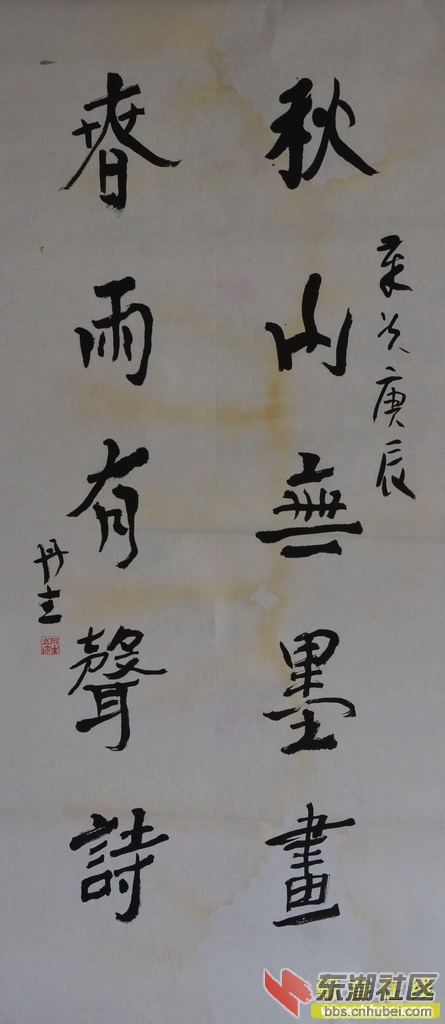 歲次庚辰
秋山無墨畫
春雨有聲詩
东湖社区
bbs.cnhubei.com